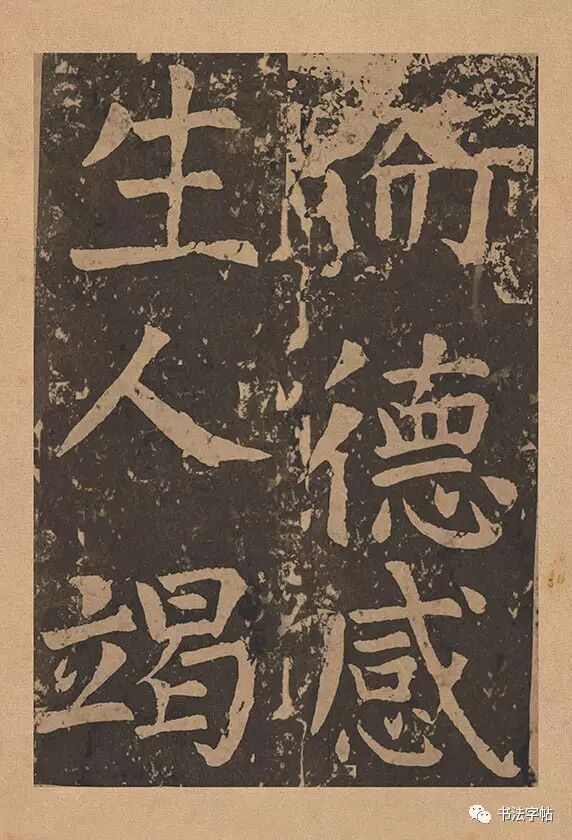 而德感
生人竭
书法字帖